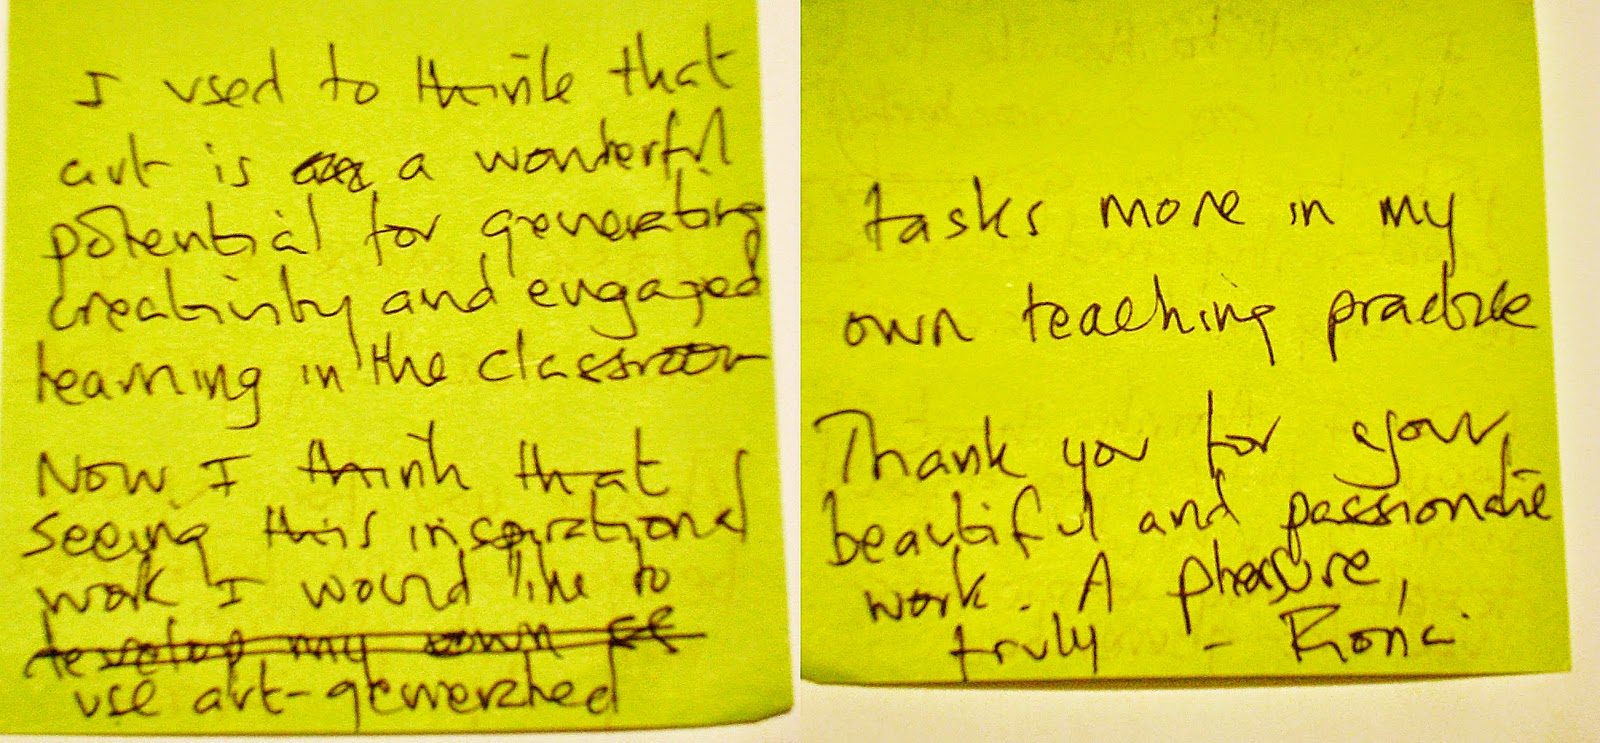 I used to think that
art is a wonderful
potential for generating
creativity and engaged
learning in the classroom
Now I think that
seeing this inspirational
work I would like to
develop my own
use art-generated
tasks more in my
own teaching practice
Thank you for your,
beautiful and passionate
work. A pleasure,
truly -